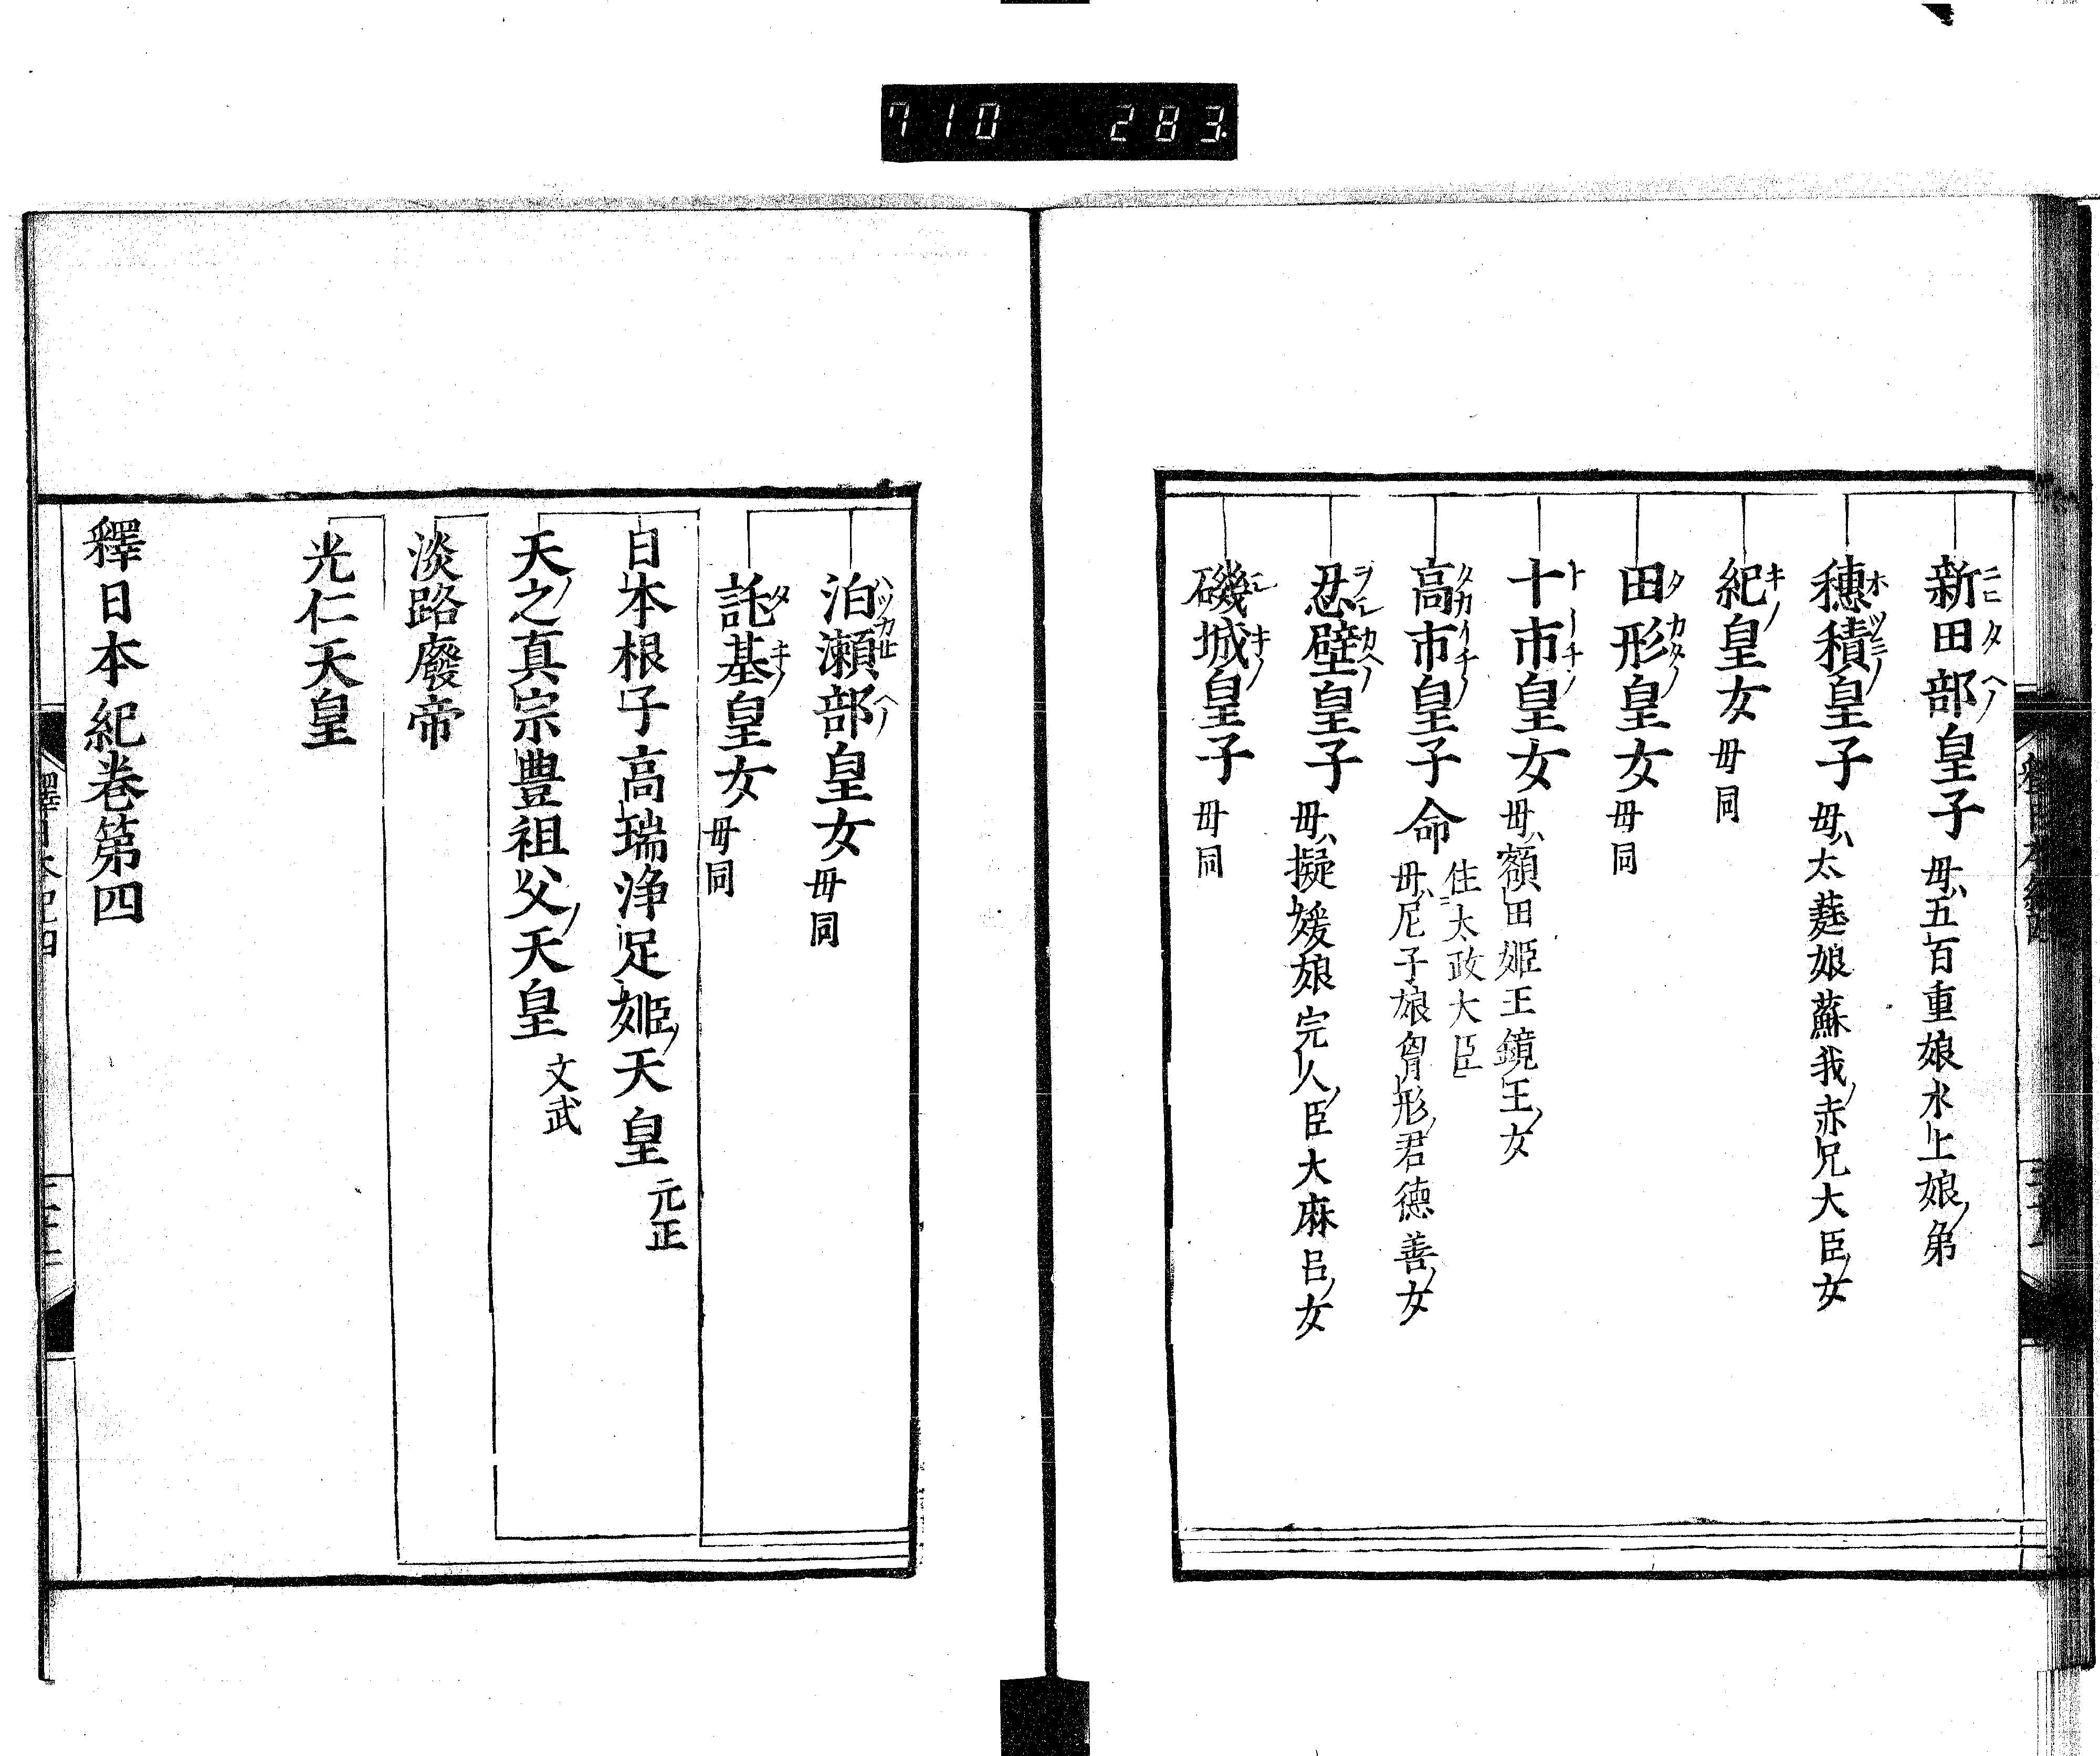 710 283
新田部皇子 母五百重娘氷上娘ノ弟
穗積皇子 母ハ太蕤娘蘇我ノ赤兄大臣ノ女
紀皇女 毋同
田形皇女 毋同
十市皇女 母ハ額田姬王鏡王ノ女
高市皇子命 任太政大臣
母ハ尼子娘胷形ノ君德善ノ女
忍壁皇子 母ハ擬媛娘完人ノ臣大麻呂ノ女
磯城皇子 毋同
泊瀬部皇女 毋同
託基皇女 毋同
日本根子高瑞浄足姬ノ天皇 元正
天ノ之真宗豊祖父ノ天皇 文武
淡路廢帝
光仁天皇
釋日本紀卷第四